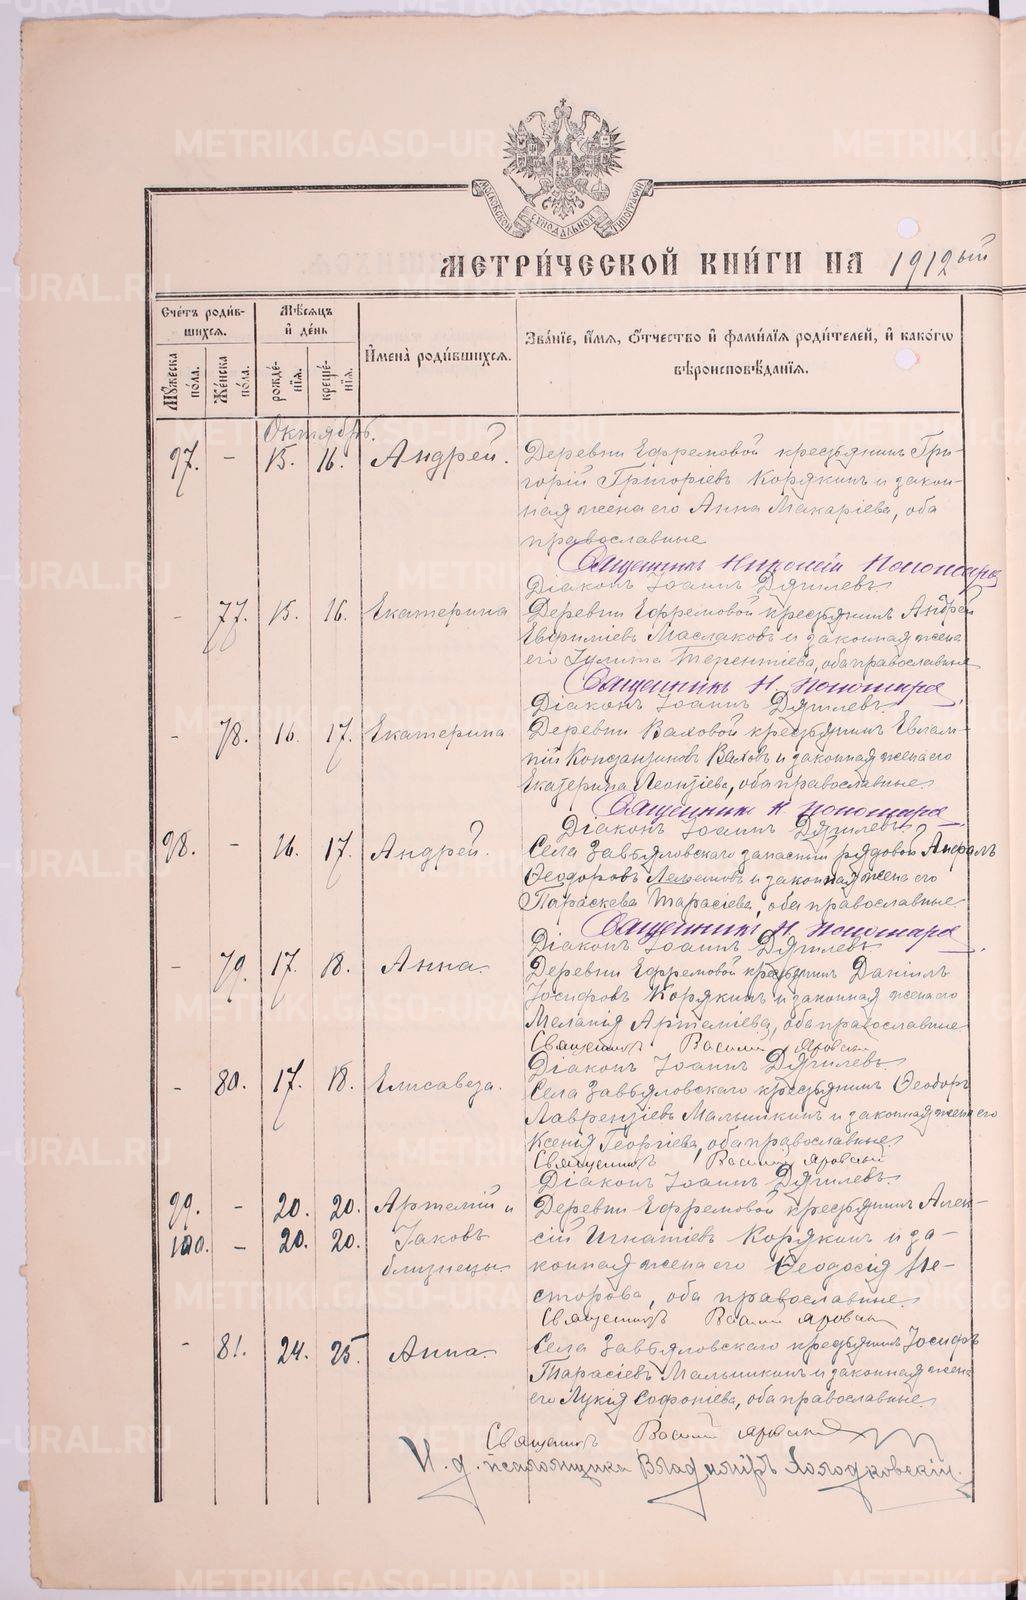 МОСКОВСКОЙ СѴНОДАЛЬНОЙ ТИПОГРАФІИ
МЕТРИ́ЧЕСКОЙ КНИ́ГИ НА 1912ый
Счетъ роди́в-
шихся.
Мѣсяцъ
и де́нь
Мужеска
по́ла.
Же́нска
по́ла.
рожде́-
нїя.
креще́-
нїя.
Имена̀ роди́вшихся.
Зва́нїе, и́мя, о́тчество и фами́лїя роди́телей, и како́гѡ
вѣроисповѣ́данїя.
Октябрь.
97. - 15. 16. Андрей. Деревни Ефремовой крестьянинъ Гри-
горій Григоріевъ Корякинъ и закон-
ная жена его Анна Макаріева, оба
православные
Священникъ Николай Пономарев
Діаконъ Іоаннъ Дягилевъ
- 77. 15. 16. Екатерина Деревни Ефремовой крестьянинъ Андрей
Евфиміевъ Маслаковъ и законная жена
его Іулита Терентіева, оба православные
Священникъ Н. Пономарев
Діаконъ Іоаннъ Дягилевъ
- 78. 16. 17. Екатерина Деревни Валовой крестьянинъ Евлам-
пій Константиновъ Валовъ и законная жена его
Екатерина Леонтіева, оба православные
Священникъ Н. Пономарев
Діаконъ Іоаннъ Дягилевъ
98. - 16. 17. Андрей. Села Завьяловскаго запасный рядовой
Ѳеодоровъ и законная жена его
Параскева Тарасіева, оба православные
Священникъ Н. Пономарев
Діаконъ Іоаннъ Дягилевъ
- 79. 17. 18. Анна. Деревни Ефремовой крестьянинъ Даніилъ
Іосифовъ Корякинъ и законная жена его
Меланія Артеміева, оба православные
Священникъ Василій Яровский
Діаконъ Іоаннъ Дягилевъ
- 80. 17. 18. Елисавета. Села Завьяловскаго крестьянинъ Ѳеодоръ
Лаврентіевъ Малышкинъ и законная жена его
Ксенія Георгіева, оба православные
Священникъ Василій Яровский
Діаконъ Іоаннъ Дягилевъ.
99. - 20. 20. Артемій и Деревни Ефремовой крестьянинъ Алек-
100. - 20. 20. Іаковъ сій Игнатіевъ Корякинъ и за-
близнецы. конная жена его Ѳеодосія Не-
сторова, оба православные.
Священникъ Василій Яровский
- 81. 24. 25. Анна. Села Завьяловскаго крестьянинъ Іосифъ
Тарасіевъ Малышкинъ и законная жена
его Лукія Софоніева, оба православные
Священникъ Василій Яровский
И. д. псаломщика Владиміръ Холодковскій.
METRIKI.GASO-URAL.RU